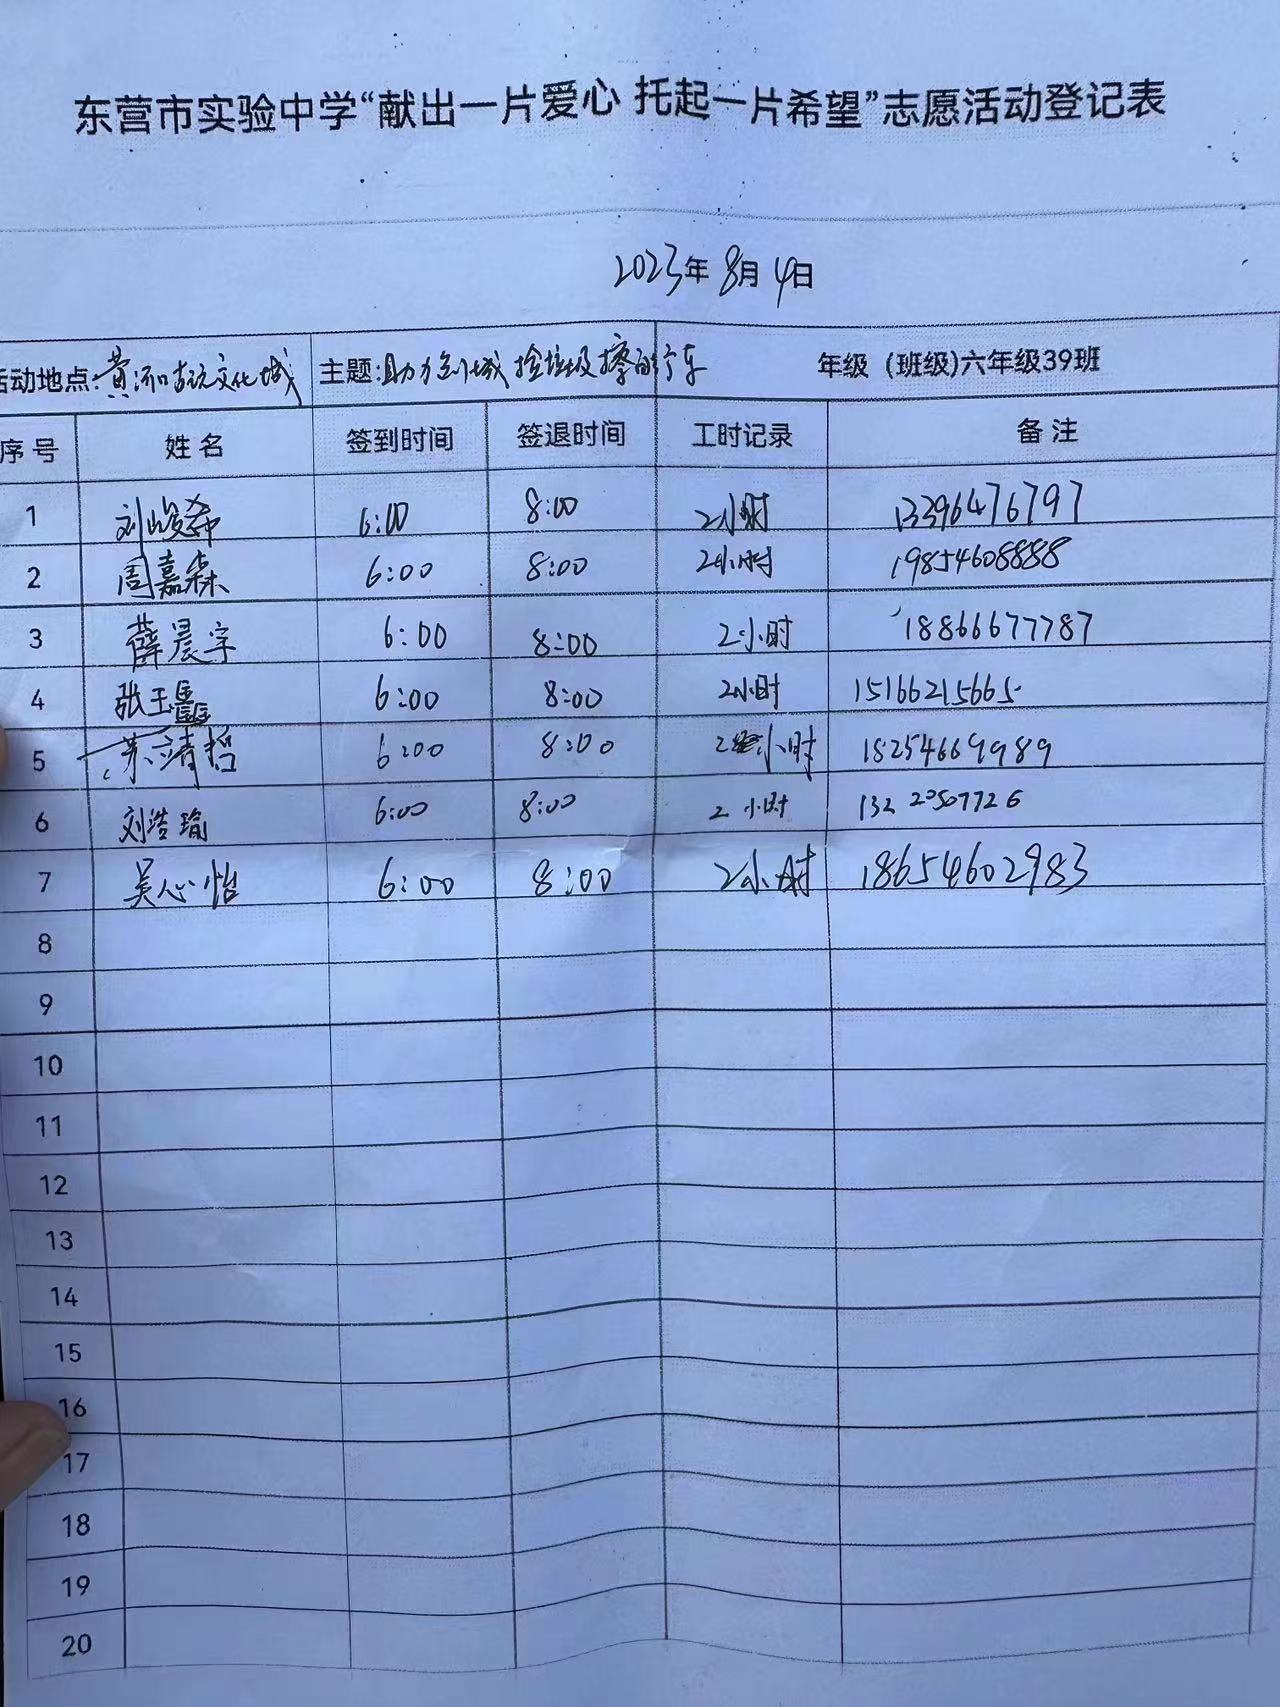 东营市实验中学“献出一片爱心 托起一片希望”志愿活动登记表
2023年8月4日
活动地点:黄河古玩文化城 主题:助力创城 捡垃圾擦自行车 年级（班级)六年级39班
序号 姓名 签到时间 签退时间 工时记录 备注
1 刘峻希 6:00 8:00 2小时 13396476797
2 周嘉森 6:00 8:00 2小时 19854608888
3 薛晨宇 6:00 8:00 2小时 18866677787
4 张玉 6:00 8:00 2小时 15166215665
5 苏靖哲 6:00 8:00 2小时 18254669989
6 刘浩瑜 6:00 8:00 2小时 132 20507726
7 吴心怡 6:00 8:00 2小时 18654602983
8
9
10
11
12
13
14
15
16
17
18
19
20